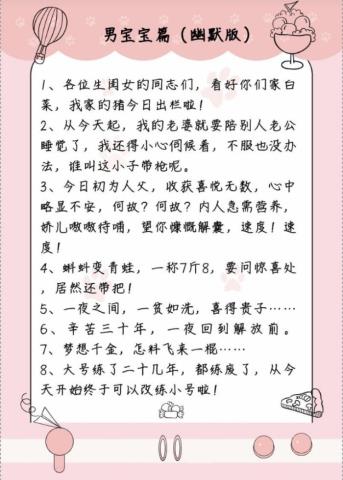 男宝宝篇（幽默版）
1、各位生闺女的同志们，看好你们家白
菜，我家的猪今日出栏啦！
2、从今天起，我的老婆就要陪别人老公
睡觉了，我还得小心伺候着，不服也没办
法，谁叫这小子带枪呢。
3、今日初为人父，收获喜悦无数，心中
略显不安，何故？何故？内人急需营养，
娇儿嗷嗷待哺，望你慷慨解囊，速度！速
度！
4、蝌蚪变青蛙，一称7斤8，要问惊喜处
，居然还带把！
5、一夜之间，一贫如洗，喜得贵子……
6、辛苦三十年，一夜回到解放前。
7、梦想千金，怎料飞来一棍……
8、大号练了二十几年，都练废了，从今
天开始终于可以改练小号啦！